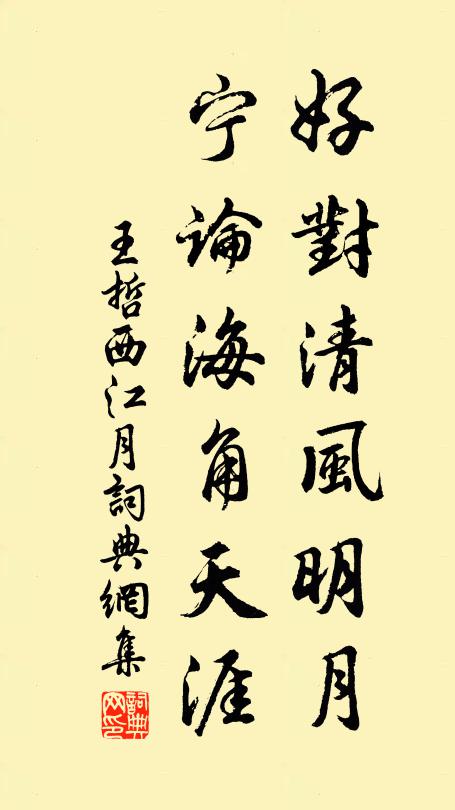 好對清風明月
宁論海角天涯
王哲西江月詞典網集
詞典网印